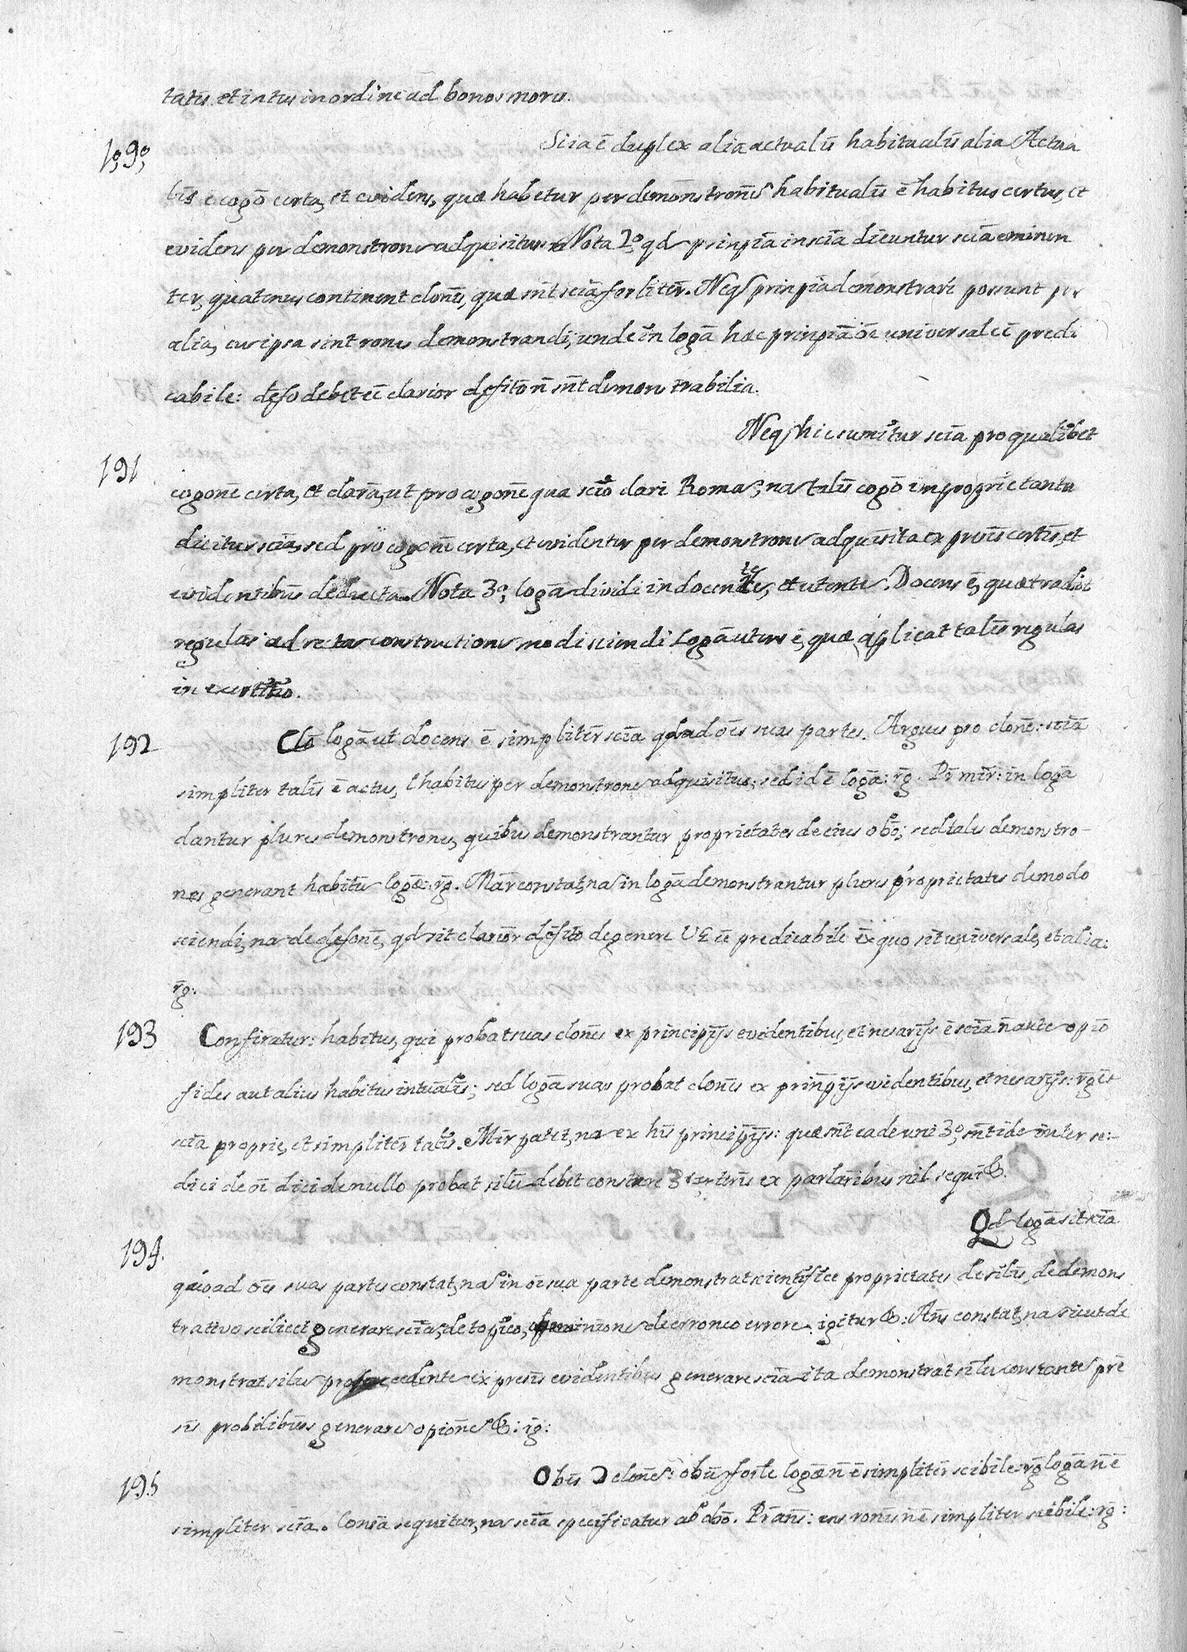 tatū et intus in ordine ad bonos mores.
190, Sciā ē duplex alia actualis habitualis alia Actua
lis ē cogō certa, et evidens, quæ habetur per demonstronēs habitualis ē habitus certus, et
evidens per demonstrones adquisitus. Nota 2º, qd prinpia in sciā dicuntur sciā eminen
ter, quatenus continent clones, quæ sūt sciā forliter. Neq prinpia demonstrari possunt per
alia, cū ipsa sint rones demonstrandi, unde in logā hæc prinpia ōe universale ē predi
cabile: defō debet eē clarior defito ñ sūt demonstrabilia.
Neq hic sumitur sciā pro qualibet
191 cogone certa, et clarā, ut pro cogone qua sciō dari Romā, nā talis cogō impropriē tantū
dicitur sciā, sed pro cogone certa, et evidenter per demonstrones adquisita ex premis certis, et
evidentibus deducta. Nota 3º, logā dividi in docentē, et utentē. Docens ē, quæ tradit
regulas ad rectas constructiones modi sciendi Logā utens ē, quæ applicat talis regulas
in exertitio.
192 Clō logā ut docens ē simpliter sciā quoad ōes suas partes. Arguus pro clone: sciā
simpliter talis ē actus, l habitus per demonstrones adquisitus; sed id ē logā: rg. Pr mir: in logā
dantur plures demonstrones, quibus demonstrantur proprietates de eius obō; sed tales demonstro-
nes generant habitū logæ: rg. Mār constat, nā in logā demonstrantur plures proprietates de modo
sciendi, nā de defone, qd sit clarior defito de genere V G eē predicabile ēx quo sit universale, et alia:
rg:
193 Confiratur: habitus, qui probat suas clones ex principijs evidentibus, et nesarijs ē sciā ñ autē opio
fides aut alius habitus intualis; sed logā suas probat clones ex prinpijs evidentibus, et nesarijs: rg ēt
sciā propriē, et simpliter talis. Mir patet, nā ex his principijs: quæ sūt eadē uni 3º, sūt idē inter se:-
dici de ōi dici de nullo probat silis debet constare 3 terinis ex parlaribus nil sequi &.
Qd logā sit sciā
194. quoad ōes suas partes constat, nā in ōi sua parte demonstrat scientifice proprietates de silis, de demons
trativo scilicet generare sciā, de topico, opinione de erroneo errore. igitur &: Ans constat, nā sicut de
monstrat silis procedente ex premis evidentibus generare sciā ita demonstrat silis constante pre
mis probilibus generare opione &: rg:
195 Obiis ɔ clone: obū forle logæ ñ ē simpliter scibile: rg logā ñ ē
simpliter sciā. Conciā sequitur, nā sciā specificatur ab obō. Pr ans: ens ronis ñ ē simpliter scibile: rg: